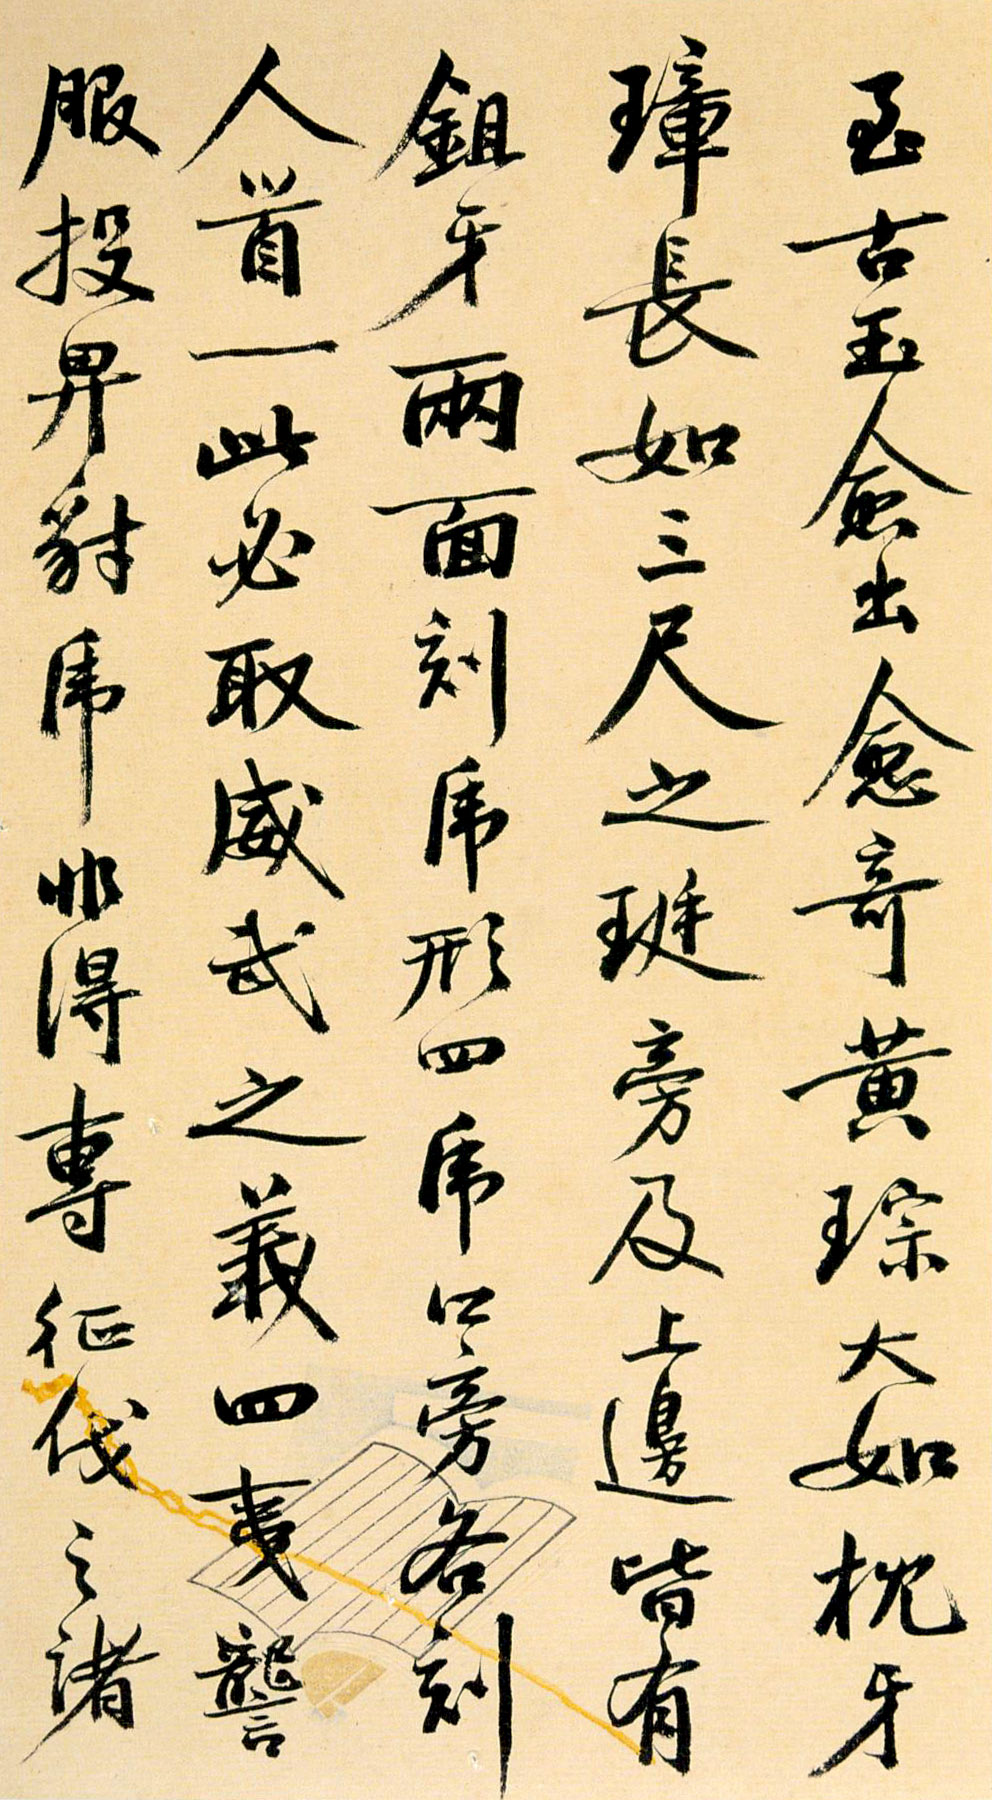 至古玉愈出愈奇黄琮大如枕牙
璋長如三尺之珽旁及上邊皆有
鉏牙兩面刻虎形四虎口旁各刻
人首一此必取威武之義四夷讋
服投畀豺虎非得專征伐之諸